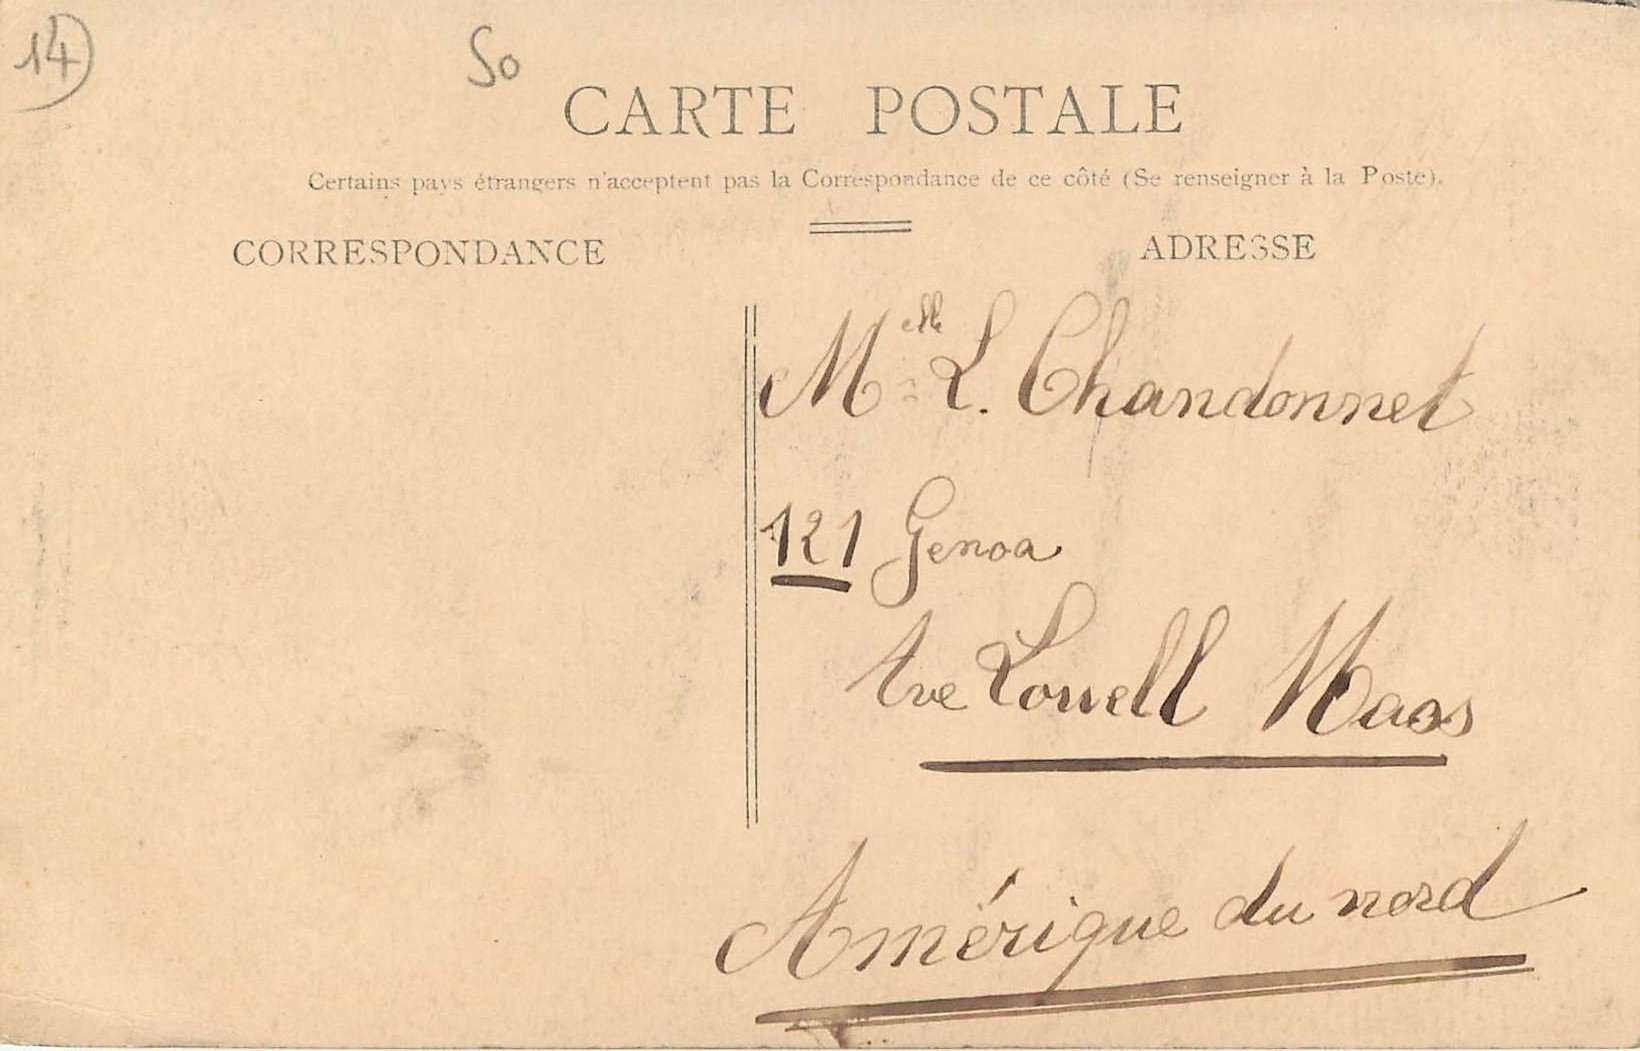 14
So
CARTE POSTALE
Certains pays étrangers n'acceptent pas la Correspondance de ce côté (Se renseigner à la Poste).
CORRESPONDANCE
ADRESSE
Melle L. Chandonnet
121 Genoa
Ave Lowell Mass
Amérique du nord